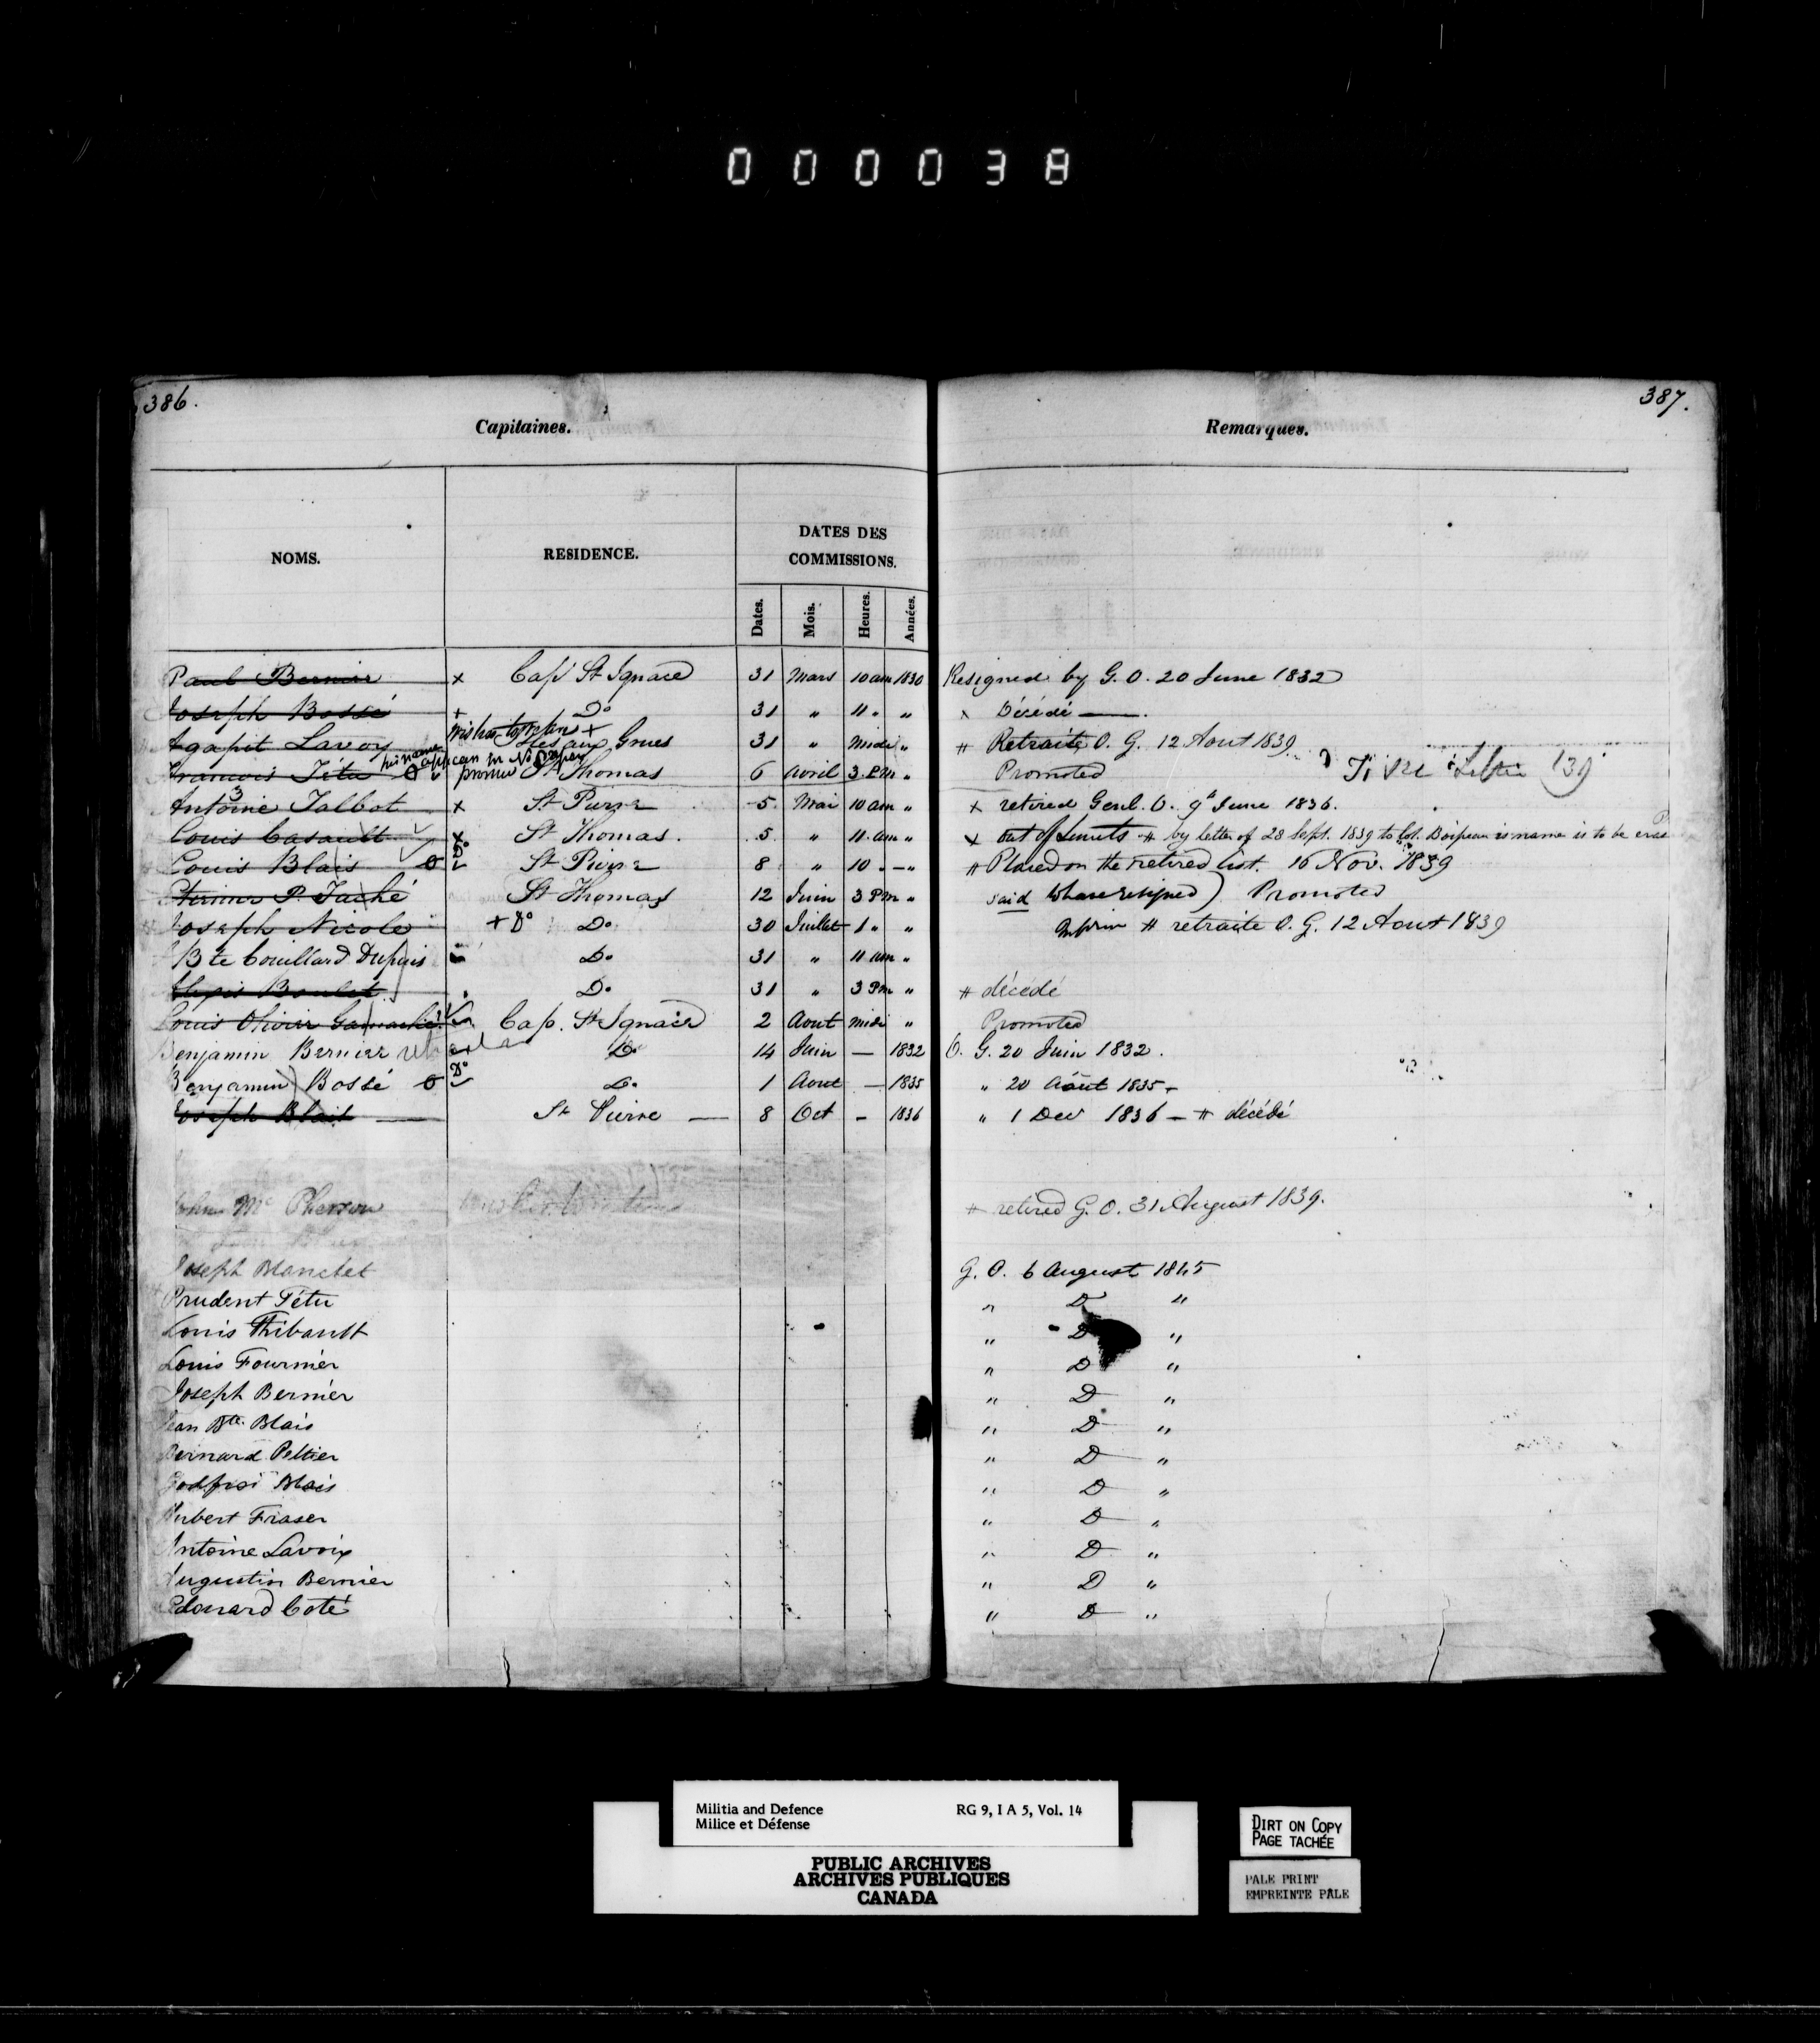 000038
386.
387.
Capitaines.
Remarques.
NOMS.
RESIDENCE.
DATES DES
COMMISSIONS.
Dates.
Mois.
Heures.
Années.
Paul Bernier x Cap St Ignace 31 Mars 10 am 1830 Resigned by G. O. 20 June 1832
Joseph Bossé + Do 31 " 11 " " x Décédé
Agapit Lavoy Isles aux Grues 31 " Midi " # Retraite O. G. 12 Aout 1839
François Tétu St Thomas 6 Avril 3 PM " Promoted
Antoine Talbot x St Pierre 5 Mai 10 am " x retired Genl. O. 9th June 1836.
Louis Casault x St Thomas. 5 " 11 am " x out of Limits # by letter of 28 Sept. 1839 to Col. is name is to be
Louis Blais Do St Pierre 8 " 10 - " # Placed on the retired list. 16 Nov. 1839
P. Taché St Thomas 12 Juin 3 PM " said to have resigned) Promoted
Joseph Nicole + Do Do 30 Juillet 1 " " # retraite O. G. 12 Aout 1839
J Bte Couillard Dupuis Do 31 " 11 am "
Alexis Boulet Do 31 " 3 PM " # décédé
Louis Olivier Gamache Cap. St Ignace 2 Aout Midi " Promoted
Benjamin Bernier Do 14 Juin — 1832 O. G. 20 Juin 1832.
Benjamin Bossé Do Do 1 Aout — 1835 " 20 Aout 1835 -
Joseph Blais — St Pierre — 8 Oct - 1836 " 1 Dec 1836 - # décédé
John Mc Pherson # retired G. O. 31 August 1839.
Joseph Blanchet G. O. 6 August 1845
Prudent Tétu " D "
Louis Thibault " D "
Louis Fournier " D "
Joseph Bernier " D "
Jean Bte. Blais " D "
Bernard Peltier " D "
Godfroi Blais " D "
Hubert Fraser " D "
Antoine Lavoix " D "
Augustin Bernier " D "
Edouard Coté " D "
Militia and Defence RG 9, I A 5, Vol. 14
Milice et Défense
PUBLIC ARCHIVES
ARCHIVES PUBLIQUES
CANADA
DIRT ON COPY
PAGE TACHÉE
PALE PRINT
EMPREINTE PÂLE